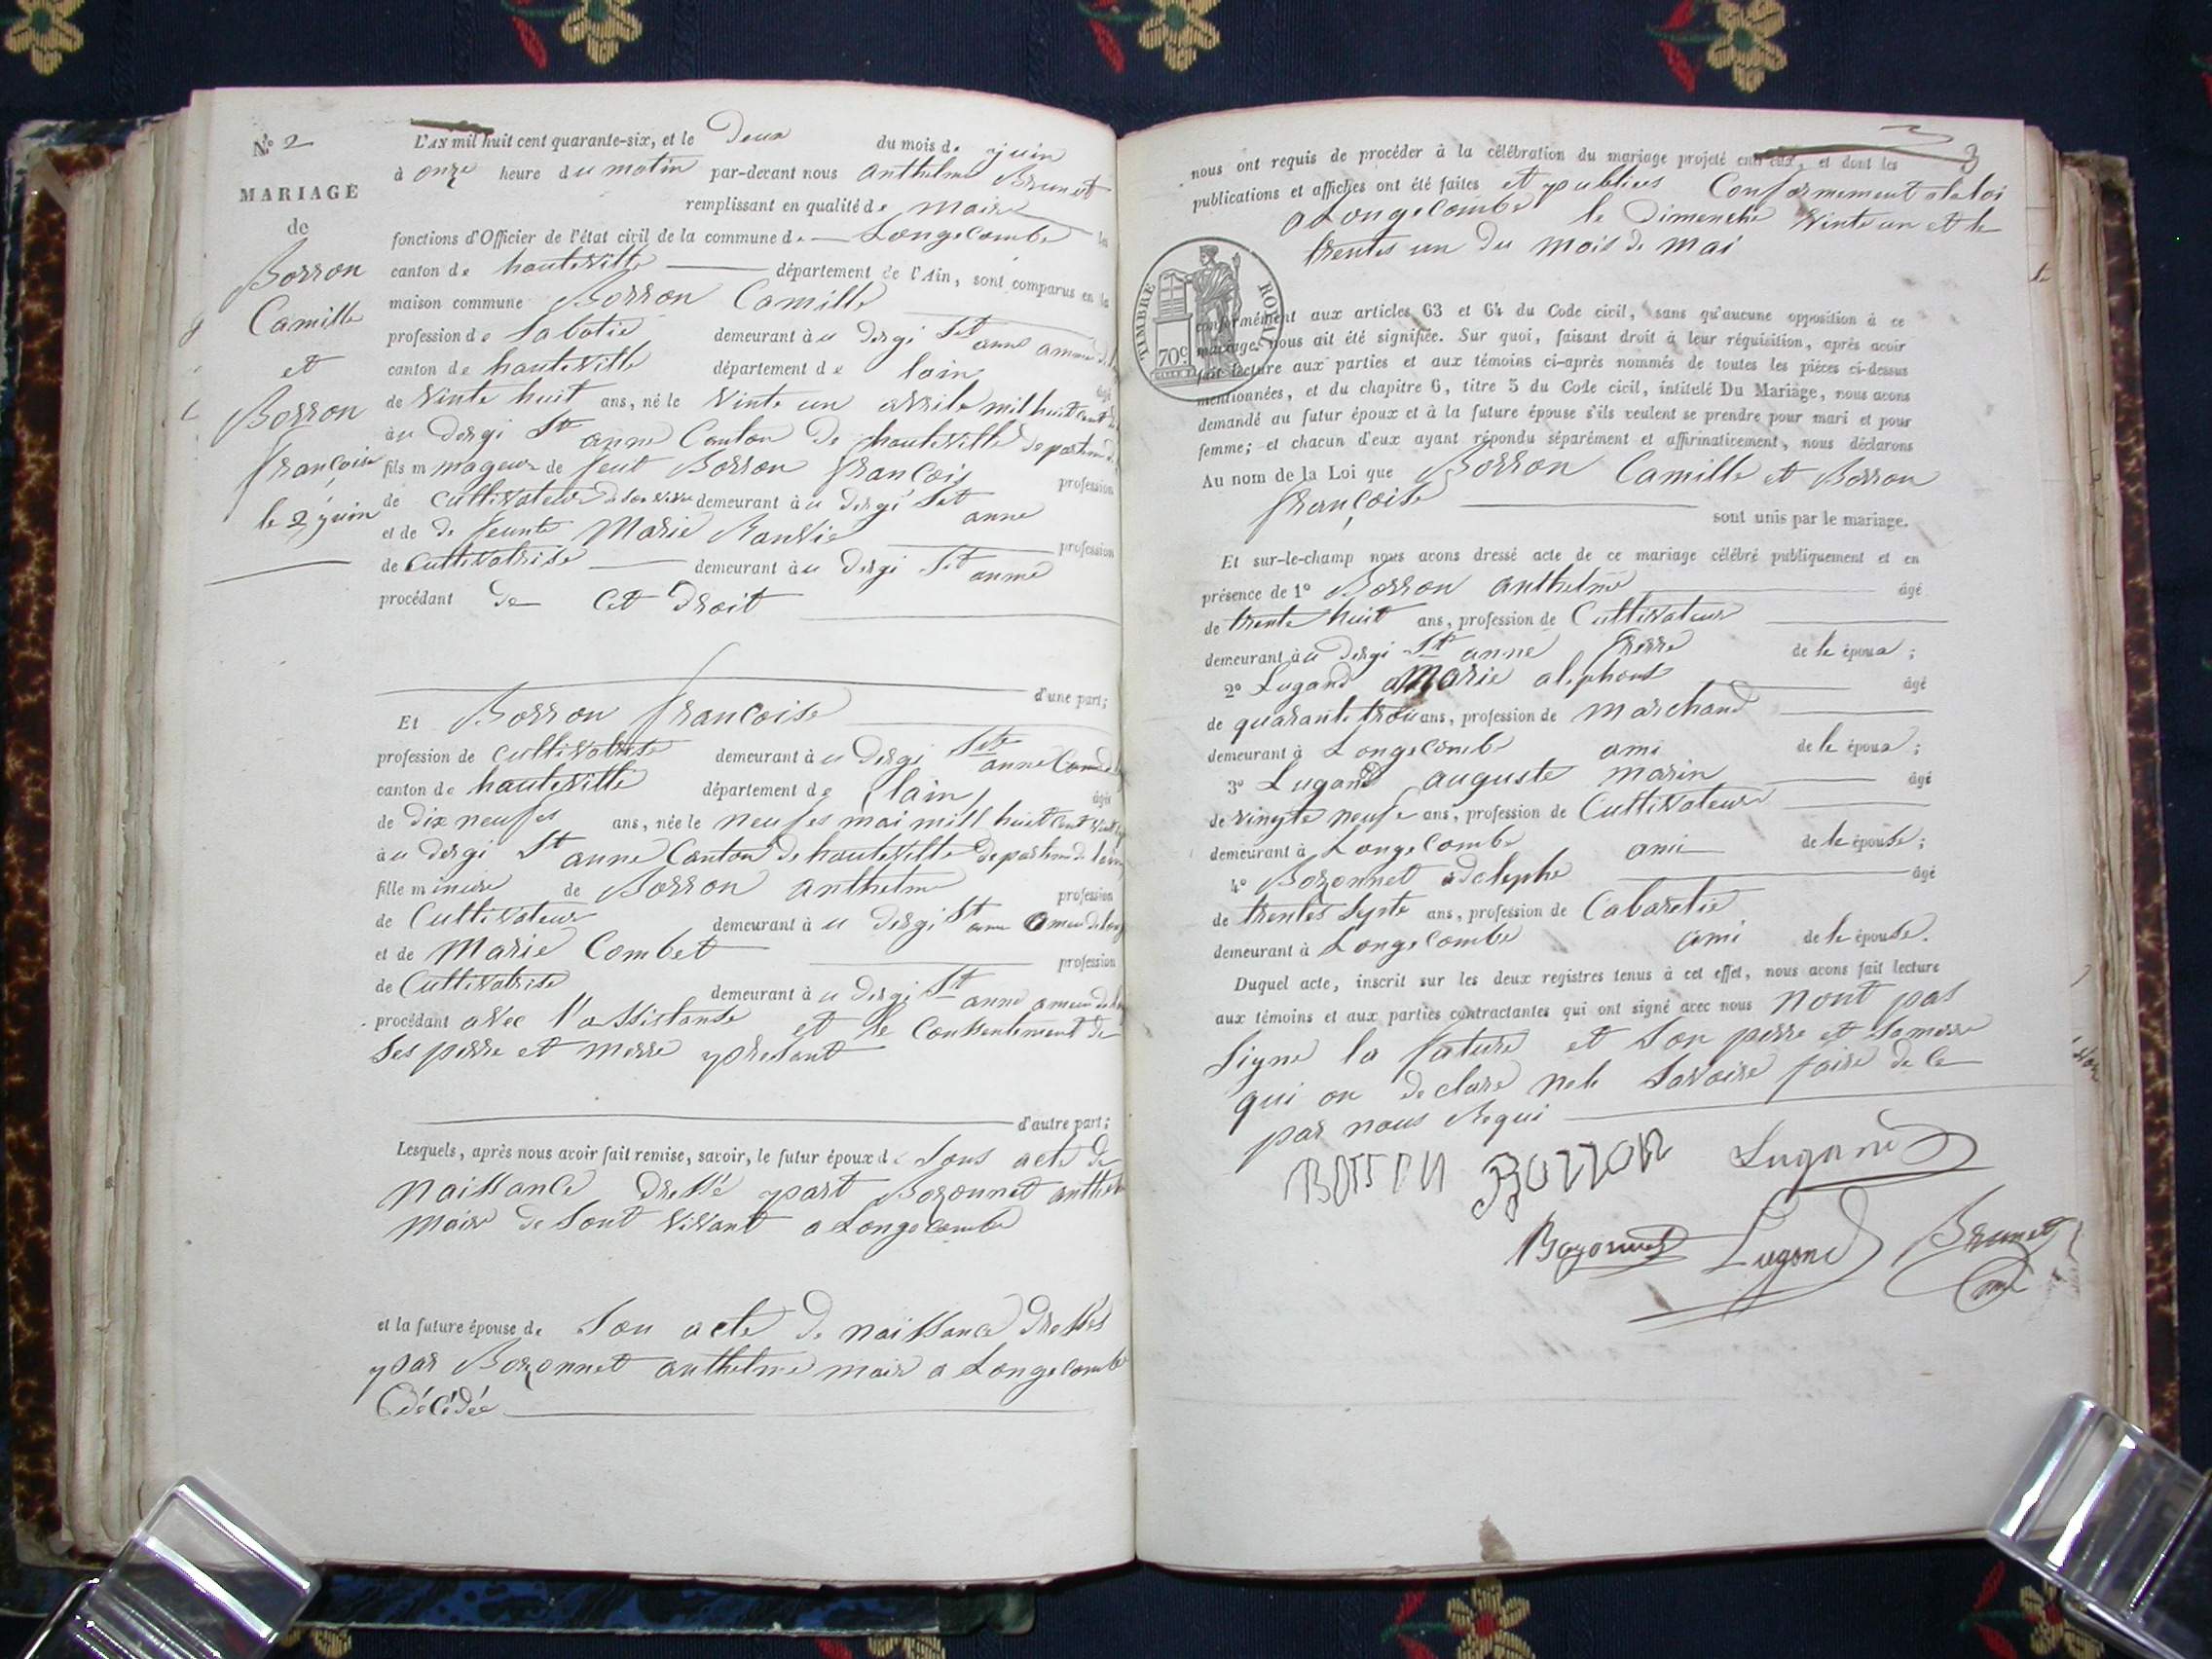 N.° 2
MARIAGE
de
Borron
Camille
et
Borron
françoise
le 2 juin
L'AN mil huit cent quarante-six, et le Deux du mois de juin
à onze heure du matin par-devant nous anthelme Brunet
remplissant en qualité de maire les
fonctions d'Officier de l'état civil de la commune de Longecombe
canton de hauteville département de l'Ain, sont comparus en la
maison commune Borron Camille
profession de Sabotie demeurant à u dergi St anne
canton de hauteville département de lain âgé
de vinte huit ans, né le vinte un avrile mil huit cent
àu dergi St anne Canton de hauteville
fils m mageur de feut Borron françois profession
de cultivateur de son vivan demeurant àu dergi St anne
et de De feunte Marie Ranvie profession
de Cultivatrise demeurant àu dergi St anne
procédant de Cet Droit
d'une part;
Et Borron francoise
profession de cultivatrise demeurant à u dergi Ste anne
canton de hauteville département de lain âgée
de dix neufes ans, née le neufes mai mill huit cent
àu dergi St anne Canton de hauteville
fille m ineure de Borron anthelme profession
de Cultivateur demeurant à u dergi St anne
et de Marie Combet profession
de Cultivatrise demeurant à u dergi St anne
procédant avec l'assistanse et le Consentement de
ses perre et merre present
d'autre part;
Lesquels, après nous avoir fait remise, savoir, le futur époux de Sons acte de
naissance Dressé part Bozonnet anthelme
maire de Sont vivant a Longecombe
et la future épouse de Son acte De naissance Dressés
par Bozonnet anthelme maire a Longecombe
Décédée
3
nous ont requis de procéder à la célébration du mariage projeté entr'eux, et dont les
publications et affiches ont été faites et publiees Conformement ala loi
a Longecombe le Dimenche Vinte un et le
trentes un du mois de mai
TIMBRE ROYAL
70c
conformément aux articles 63 et 64 du Code civil, sans qu'aucune opposition à ce
mariage nous ait été signifiée. Sur quoi, faisant droit à leur réquisition, après avoir
fait lecture aux parties et aux témoins ci-après nommés de toutes les pièces ci-dessus
mentionnées, et du chapitre 6, titre 5 du Code civil, intitulé Du Mariage, nous avons
demandé au futur époux et à la future épouse s'ils veulent se prendre pour mari et pour
femme; et chacun d'eux ayant répondu séparément et affirmativement, nous déclarons
Au nom de la Loi que Borron Camille et Borron
françoise sont unis par le mariage.
Et sur-le-champ nous avons dressé acte de ce mariage célébré publiquement et en
présence de 1° Borron anthelme âgé
de trente huit ans, profession de Cultivateur
demeurant àu dergi St anne frerre de le époux;
2° Lugand Marie alphons âgé
de quarante trois ans, profession de marchand
demeurant à Longecombe ami de le époux;
3° Lugand auguste marin âgé
de vingte neufe ans, profession de Cultivateur
demeurant à Longecombe ami de le épouse;
4° Bozonnet adolephe âgé
de trentes septe ans, profession de Cabaretie
demeurant à Longecombe ami de le épouse.
Duquel acte, inscrit sur les deux registres tenus à cet effet, nous avons fait lecture
aux témoins et aux parties contractantes qui ont signé avec nous nont pas
signe la future et Son perre et Samerre
qui on declare nele savoire faire de Ce
par nous Requi
BORRON BORRON Lugand
Bozonnet Lugand Brunet